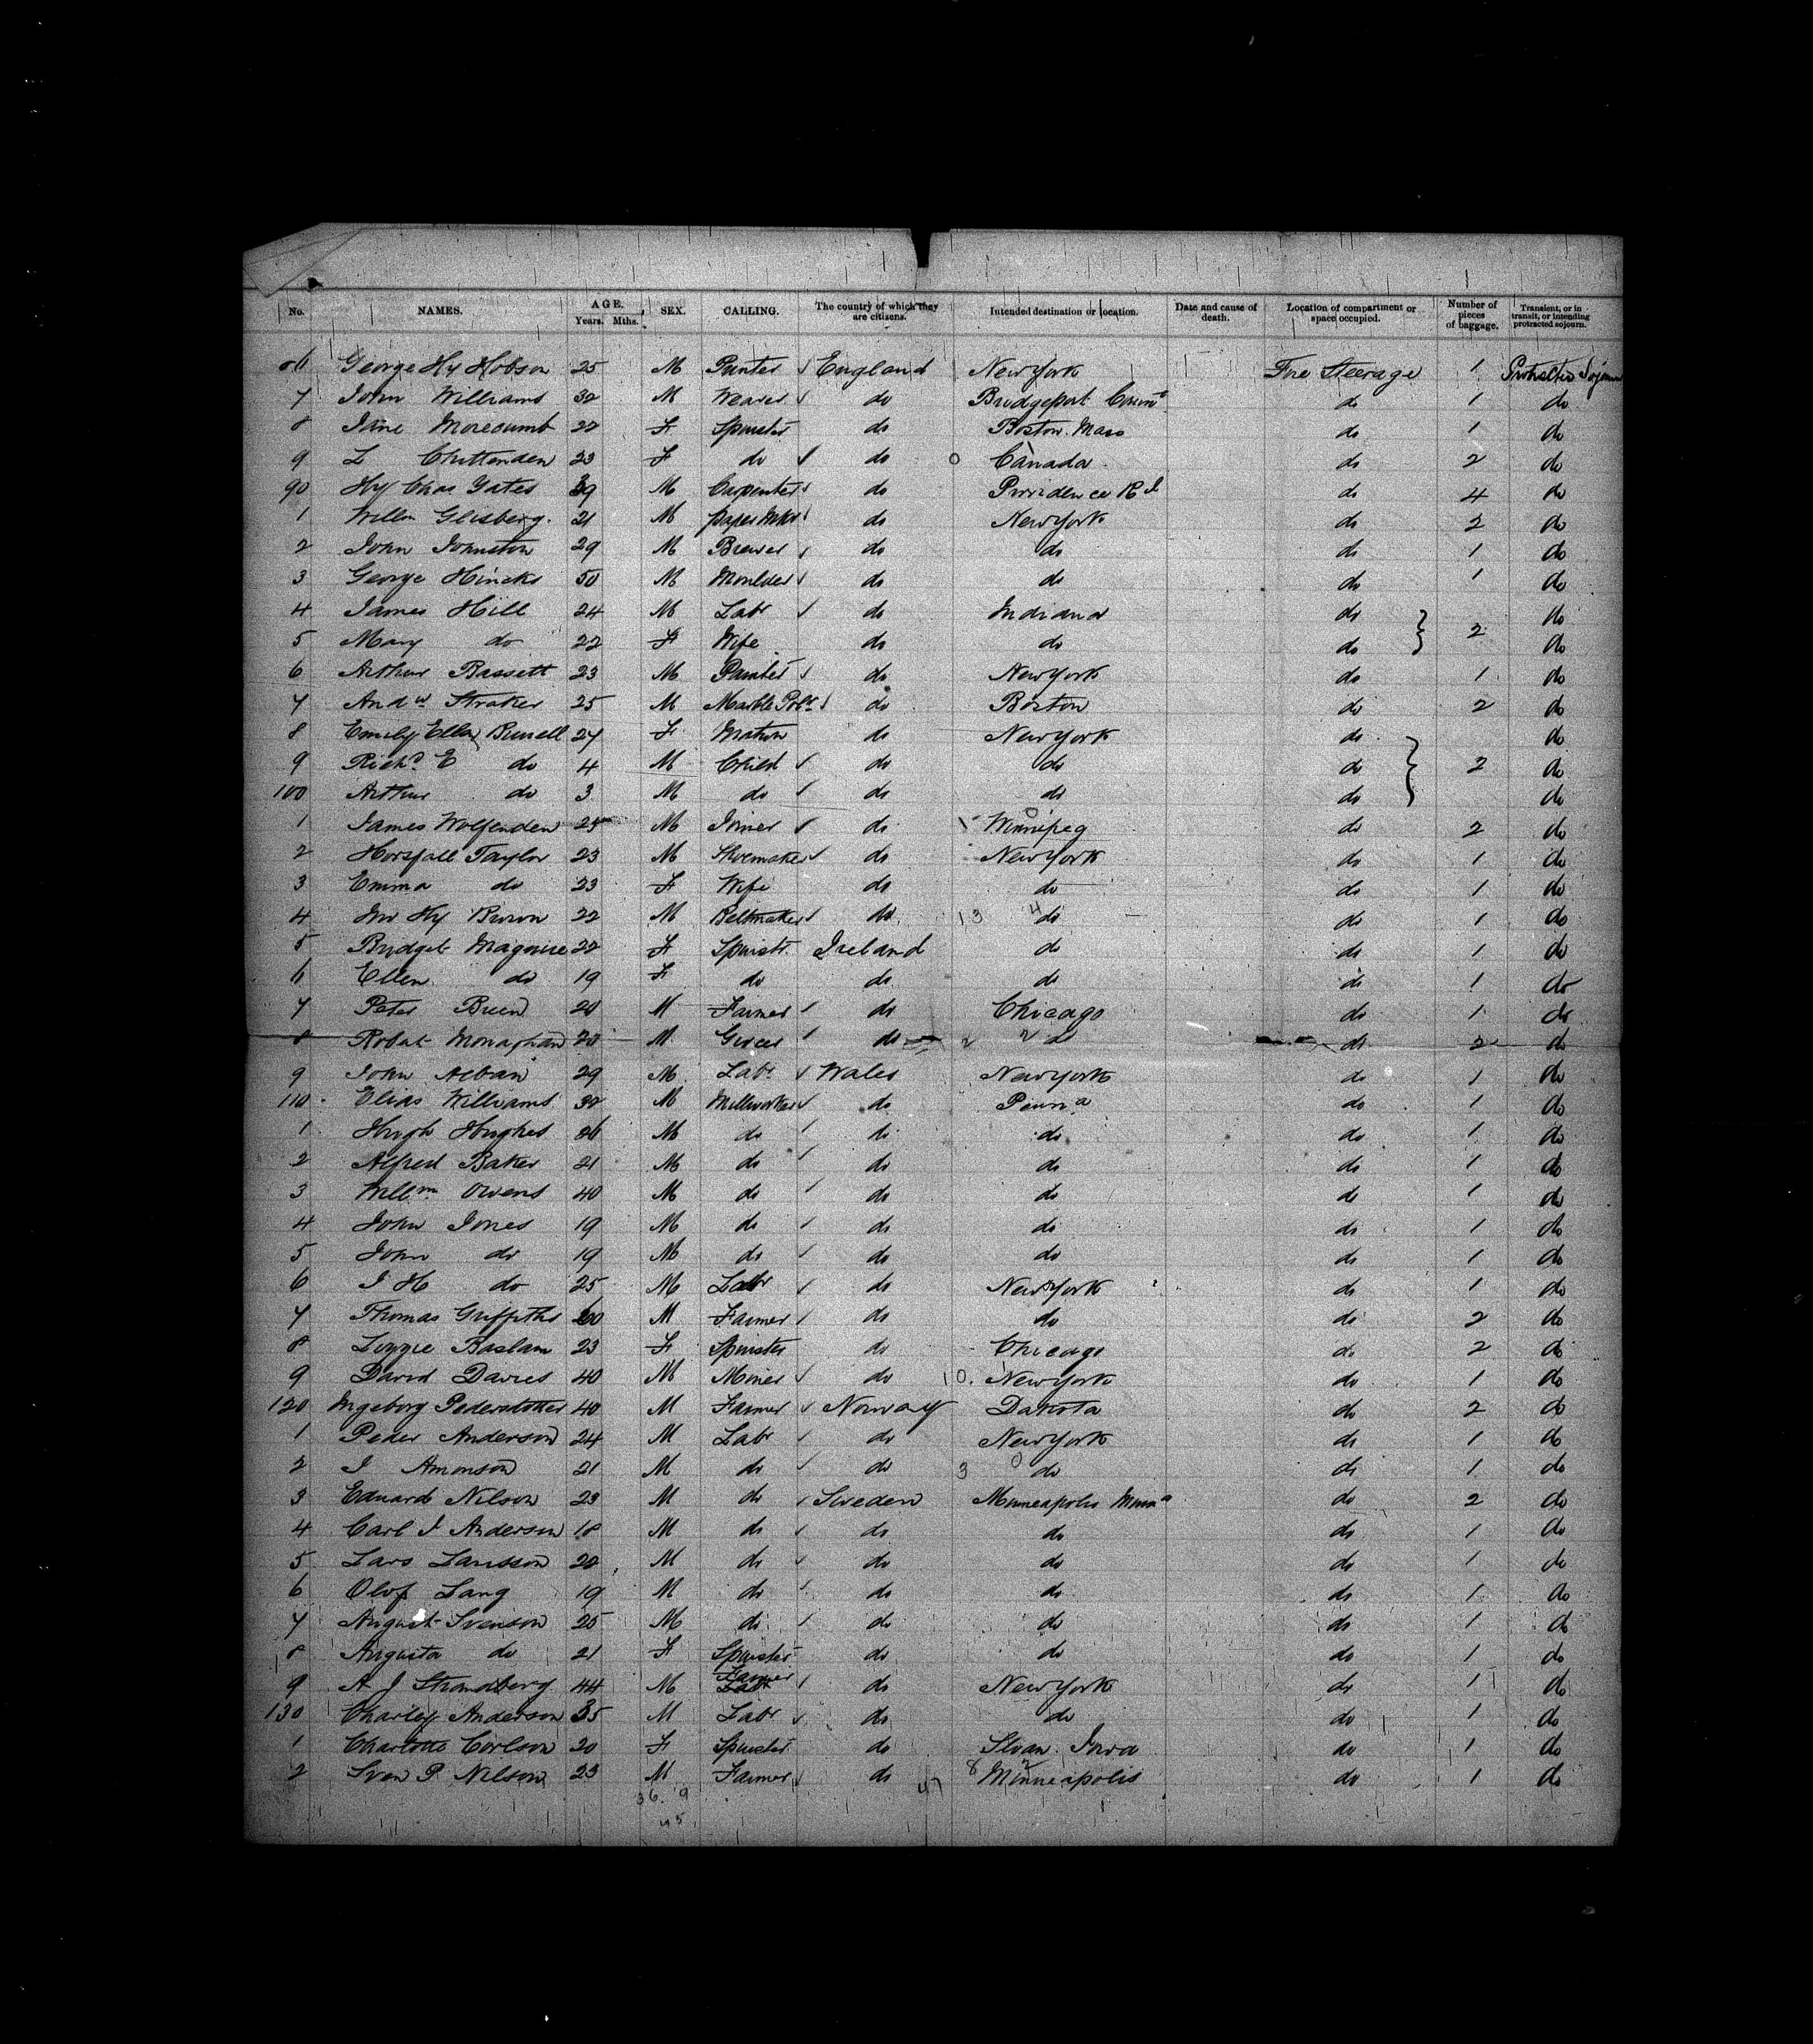 No. NAMES. AGE. Years. Mths. SEX. CALLING. The country of which they are citizens. Intended destination or location. Date and cause of death. Location of compartment or space occupied. Number of pieces of baggage. Transient, or in transit, or intending protracted sojourn.
86 George Hy Hobson 25 M England New York Fore Steerage 1 Protracted Sojourn
7 John Williams 32 M Weaver do Bridgeport Connt 1 do
8 Jane Morecumb 22 F Spinster do Boston. Mass do 1 do
9 L Chittenden 23 F do do Canada do 2 do
90 Hy Chas Yates 39 M Carpenter do Providence R I do 4 do
1 Willm Glisberg. 21 M paper Mkr do New York do 2 do
2 John Johnston 29 M Brewer do do do 1 do
3 George Hincks 50 M Moulder do do do 1 do
4 James Hill 24 M Labr do Indiana do do
5 Mary do 22 F Wife do do do 2 do
6 Arthur Bassett 23 M Painter do New York do 1 do
7 Andw Straker 25 M Marble Polr do Boston do 2 do
8 Emily Ellen 27 F Matron do New York do do
9 Richd E do 4 M Child do do do 2 do
100 Arthur do 3 M do do do do do
1 James Wolfenden M Joiner do Winnipeg do 2 do
2 Horsfall Taylor 23 M Shoemaker do New York do 1 do
3 Emma do 23 F Wife do do do 1 do
4 Hy 22 M Beltmaker do 13 4 do do 1 do
5 Bridget Maguire 22 F Spinstr. Ireland do do 1 do
6 Ellen do 19 F do do do do 1 do
7 Peter Breen 20 M Farmer do Chicago do 1 do
8 Robat Monaghan 20 M Grocer do 2 2 do do 2 do
9 John Alban 29 M Labr Wales New York do 1 do
110 Elias Williams 32 M Millworker do Penna do 1 do
1 Hugh Hughes 26 M do do do do 1 do
2 Alfred Baker 21 M do do do do 1 do
3 Willm Owens 40 M do do do do 1 do
4 John Jones 19 M do do do do 1 do
5 John do 19 M do do do do 1 do
6 J H do 25 M Labr do New York do 1 do
7 Thomas Griffiths 60 M Farmer do do do 2 do
8 Lizzie Baslam 23 F Spinster do Chicago do 2 do
9 David Davies 40 M Miner do 10. New York do 1 do
120 Ingeborg 40 M Farmer Norway Dakota do 2 do
1 Peder Anderson 24 M Labr do New York do 1 do
2 J Amonson 21 M do do 3 0 do do 1 do
3 Eduard Nilson 23 M do Sweden Minneapolis Minna do 2 do
4 Carl J Anderson 18 M do do do do 1 do
5 Lars Larsson 22 M do do do do 1 do
6 Olof Lang 19 M do do do do 1 do
7 August Svenson 25 M do do do do 1 do
8 Augusta do 21 F Spinster do do do 1 do
9 A J Strandberg 44 M Farmer do New York do 1 do
130 Charley Anderson 35 M Labr do do do 1 do
1 Charlotte Carlson 20 F Spinster do Sloan. Iowa do 1 do
2 Sven P Nilson 23 M Farmer do 47 8 2 Minneapolis do 1 do
36. 9
45